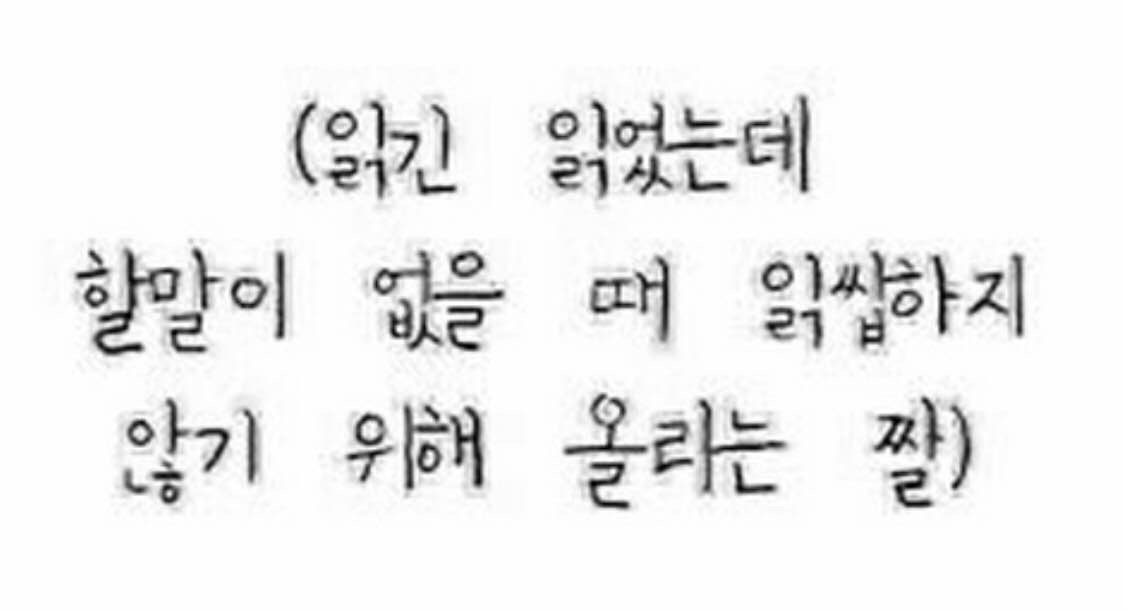 (읽긴 읽었는데
할말이 없을 때 읽씹하지
않기 위해 올리는 짤)